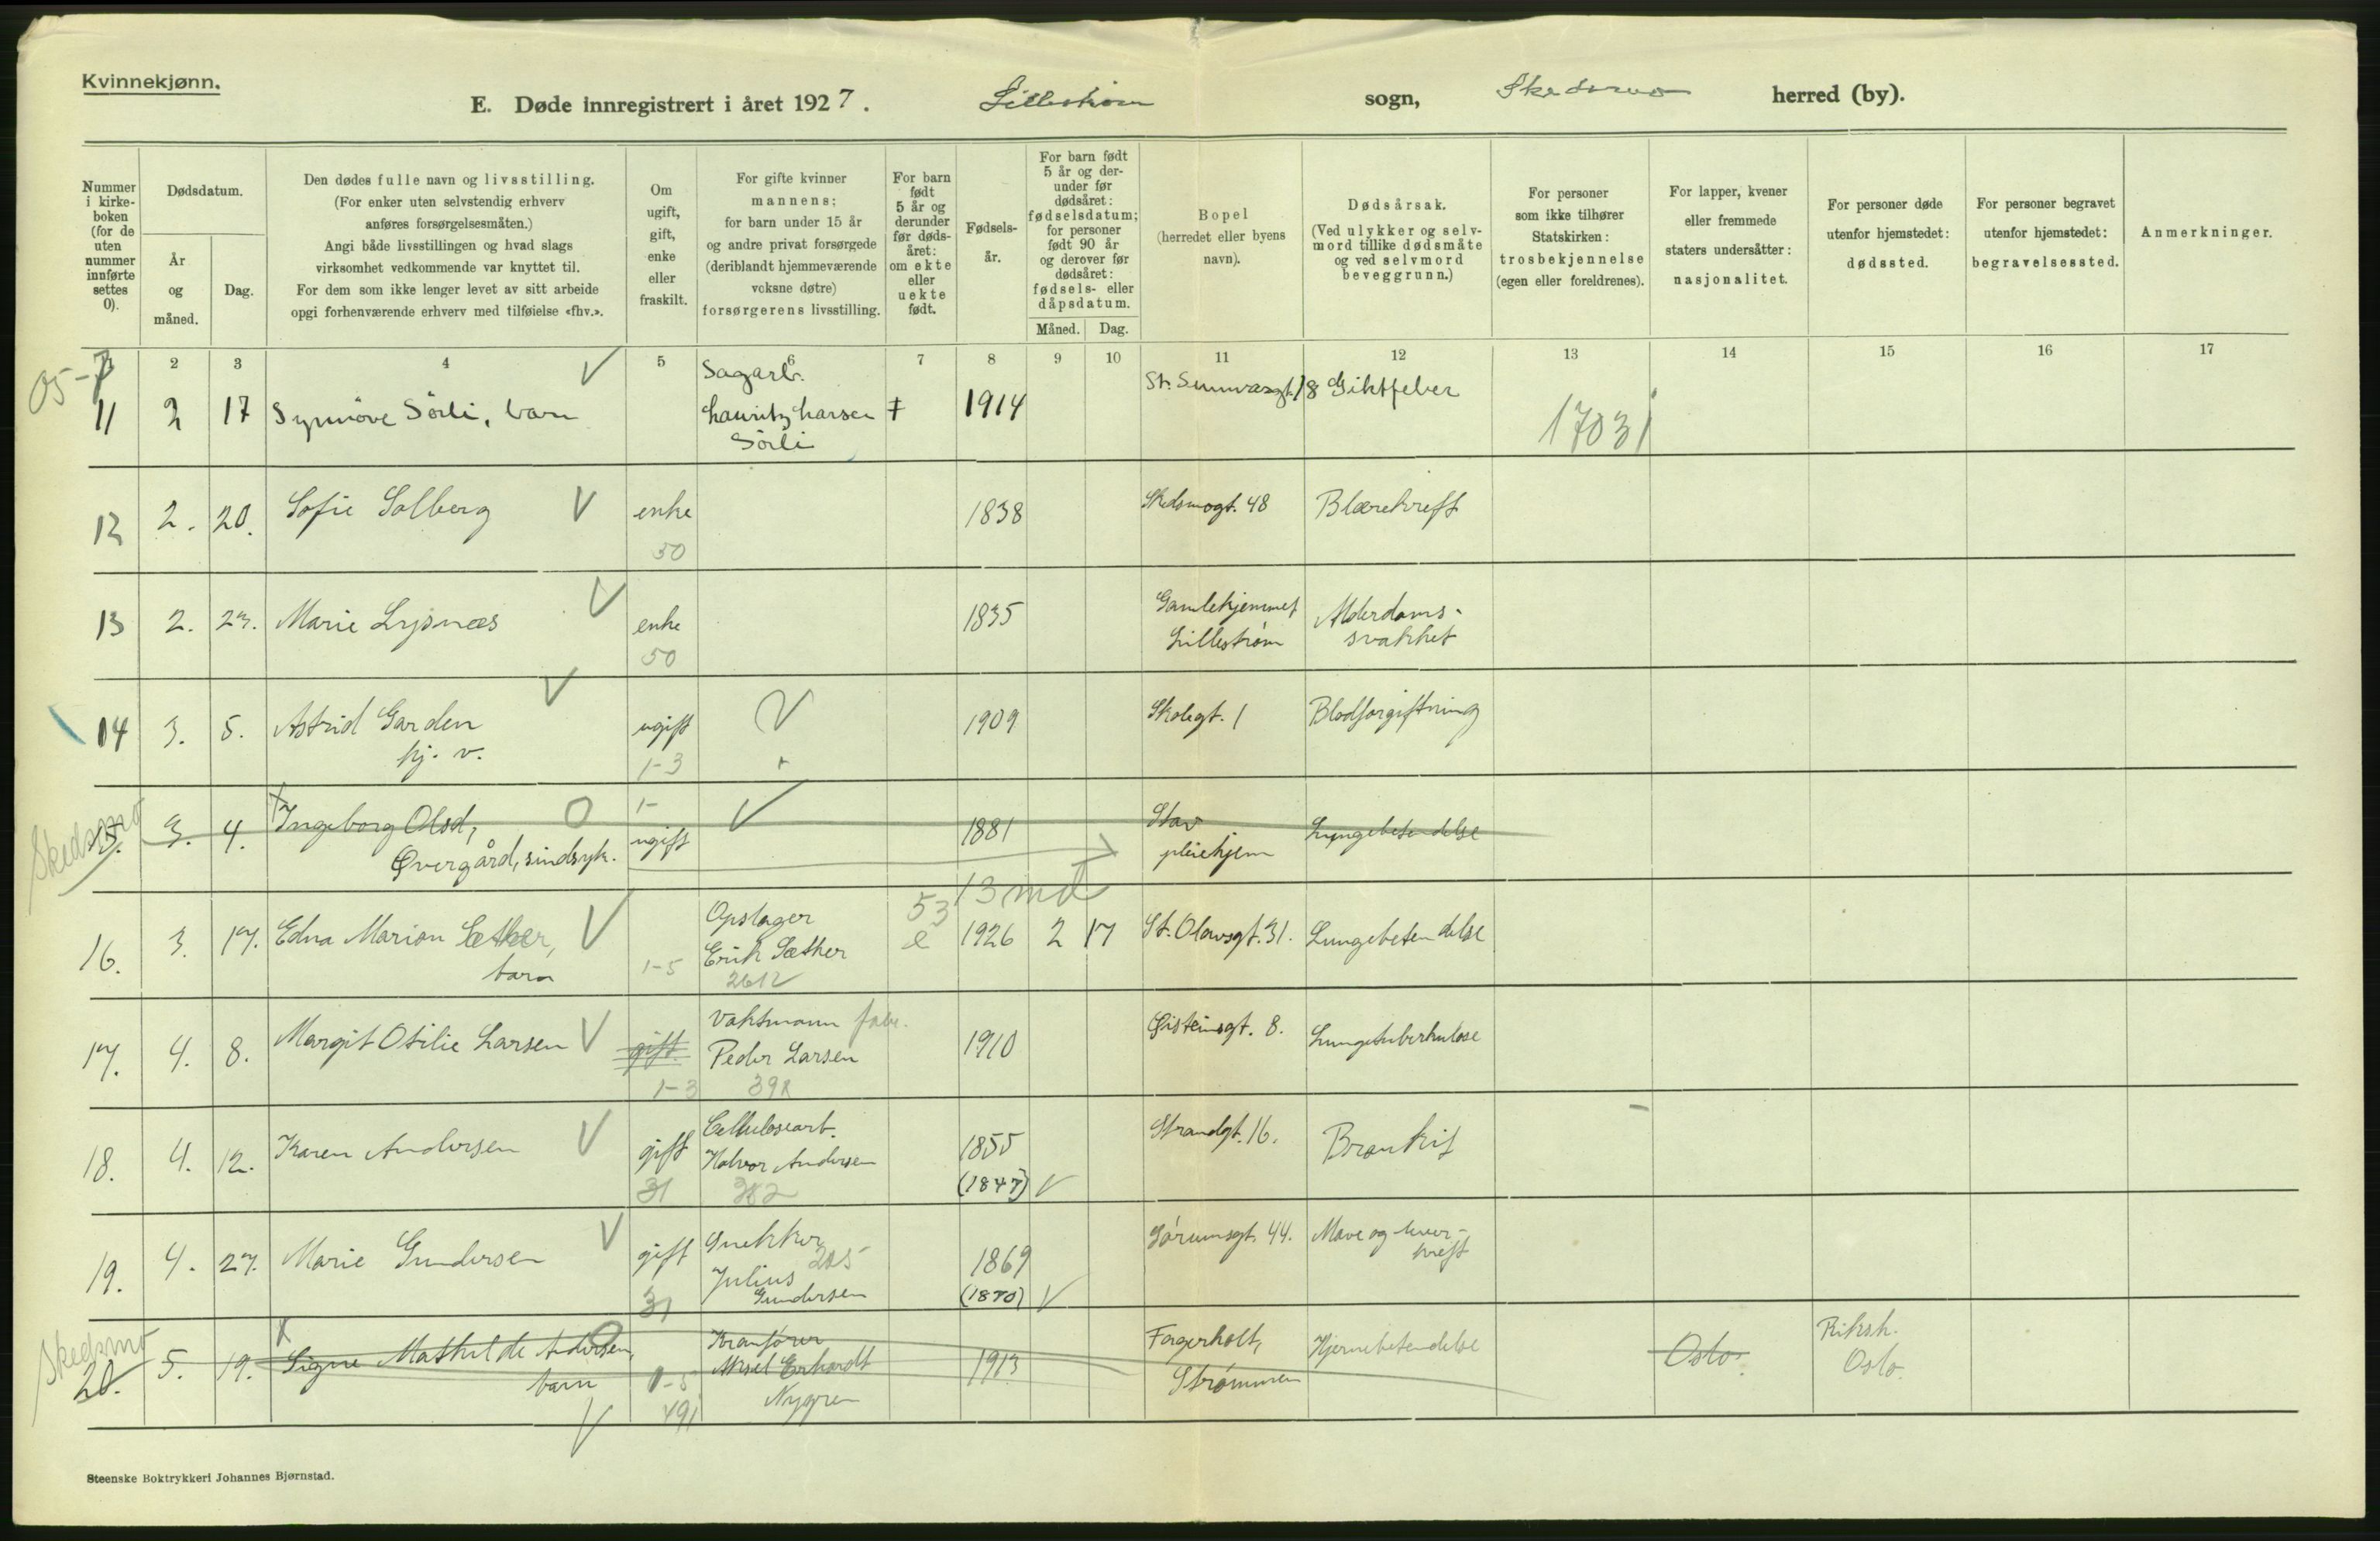 Kvinnekjønn.
E. Døde innregistrert i året 1927. Lillestrøm sogn, Skedsmo herred (by).
Nummer i kirkeboken (for de uten nummer innførte settes 0).
Dødsdatum.
År og måned.
Dag.
Den dødes fulle navn og livsstilling.
(For enker uten selvstendig erhverv
anføres forsørgelsesmåten.)
Angi både livsstillingen og hvad slags
virksomhet vedkommende var knyttet til.
For dem som ikke lenger levet av sitt arbeide
opgi forhenværende erhverv med tilføielse «fhv.».
Om ugift, gift, enke eller fraskilt.
For gifte kvinner
mannens;
for barn under 15 år
og andre privat forsørgede
(deriblandt hjemmeværende
voksne døtre)
forsørgerens livsstilling.
For barn født 5 år og derunder før dødsåret: om ekte eller uekte født.
Fødselsår.
For barn født 5 år og derunder før dødsåret: fødselsdatum; for personer født 90 år og derover før dødsåret: fødsels- eller dåpsdatum.
Måned. Dag.
Bopel
(herredet eller byens
navn).
Dødsårsak.
(Ved ulykker og selv-
mord tillike dødsmåte
og ved selvmord
beveggrunn.)
For personer
som ikke tilhører
Statskirken:
trosbekjennelse
(egen eller foreldrenes).
For lapper, kvener
eller fremmede
staters undersåtter:
nasjonalitet.
For personer døde
utenfor hjemstedet:
dødssted.
For personer begravet
utenfor hjemstedet:
begravelsessted.
Anmerkninger.
2 3 4 5 6 7 8 9 10 11 12 13 14 15 16 17
05-7
11 2 17 Synnöve Sörli, barn Sagarb. Lauritz Larsen Sörli 1914 St. Sunnivasgt. 18 Giktfeber
17031
12 2. 20. Sofie Solberg enke 1838 Skedsmogt. 48 Blærekreft
50
13 2. 23. Marie Lysnæs enke 1835 Gamlehjemmet Lillestrøm Alderdoms-svakhet
50
14 3. 5. Astrid Garden hj. v. ugift 1909 Skolegt. 1 Blodforgiftning
1-3
Skedsmo
15. 3. 4. Ingeborg Olsd, Øvergård, sindsyk. 1- ugift 1881 Stav pleiehjem Lungebetendelse
13 md
16. 3. 17. Edna Marion Sæther, barn 1-5 Opslager Erik Sæther 2612 53 e 1926 2 17 St. Olavsgt. 31. Lungebetendelse
17. 4. 8. Margit Otilie Larsen gift 1-3 Vaktmann fabr. Peder Larsen 392 1910 Øisteinsgt. 8. Lungetuberkulose
18. 4. 12. Karen Andersen gift 31 Celluloseart. Halvor Andersen 382 1855 (1847) Strandgt. 16. Bronkit
19. 4. 27. Marie Gundersen gift 31 Snekker 205 Julius Gundersen 1869 (1870) Sørumsgt. 44. Mave og lever-kreft
Skedsmo
20. 5. 19. Signe Mathilde Andersen, barn 491 Kranfører Aksel Erhardt Nygren 1913 Fagerholt, Strømmen Hjernebetendelse Oslo. Riksh. Oslo.
Steenske Boktrykkeri Johannes Bjørnstad.